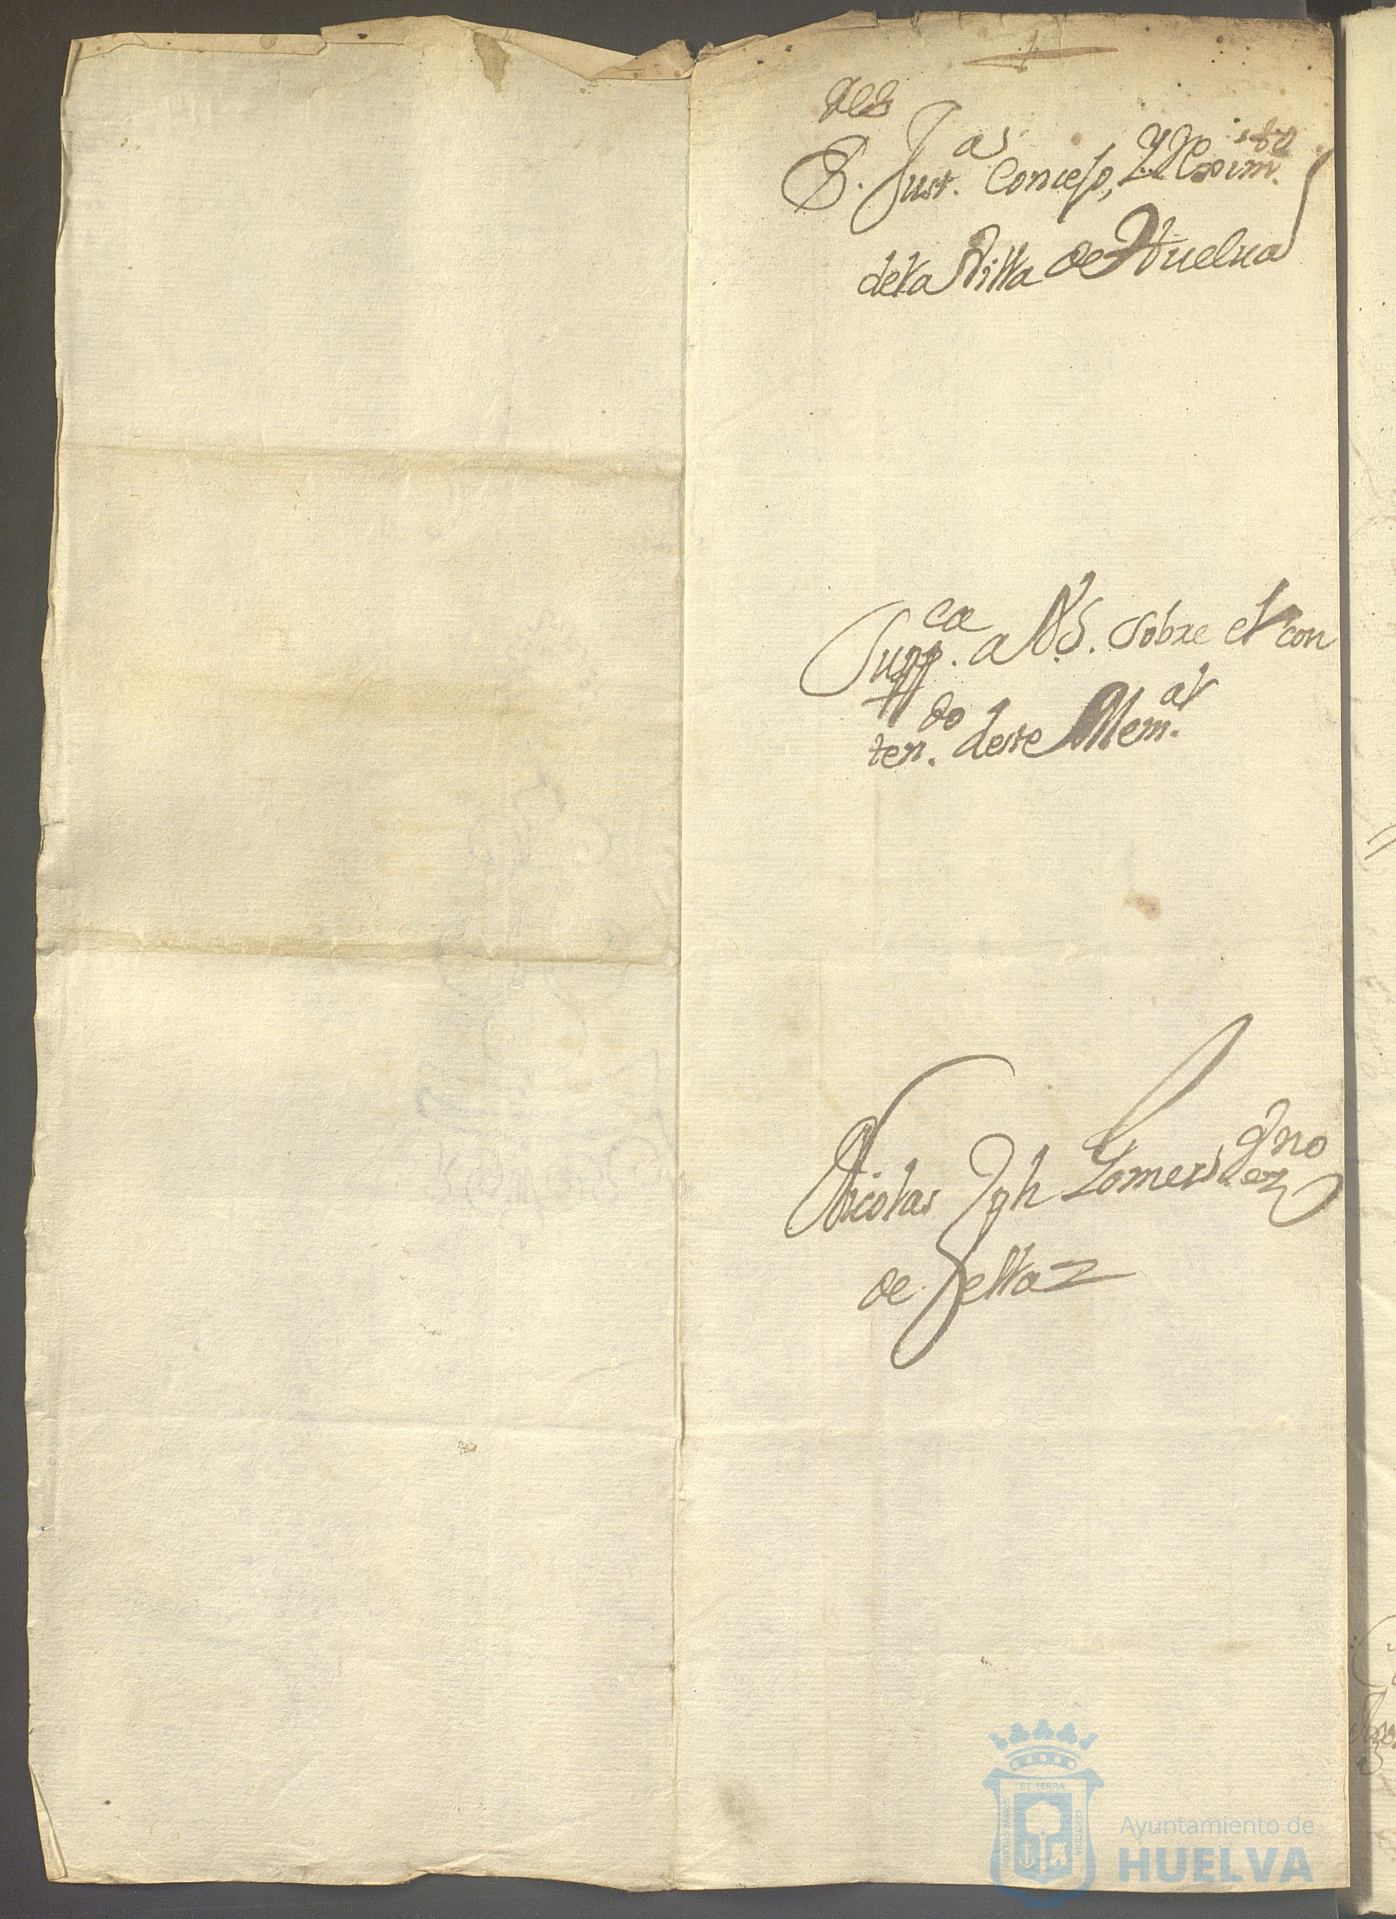 1
S.res Just.as Concejo, y Rexim.to
de la Villa de Huelua
Supp.ca a V.S. sobre el con
ten.do deste Mem.al
Nicolas Jph Gomez
de Zelta
ET TERRAE
Ayuntamiento de
HUELVA